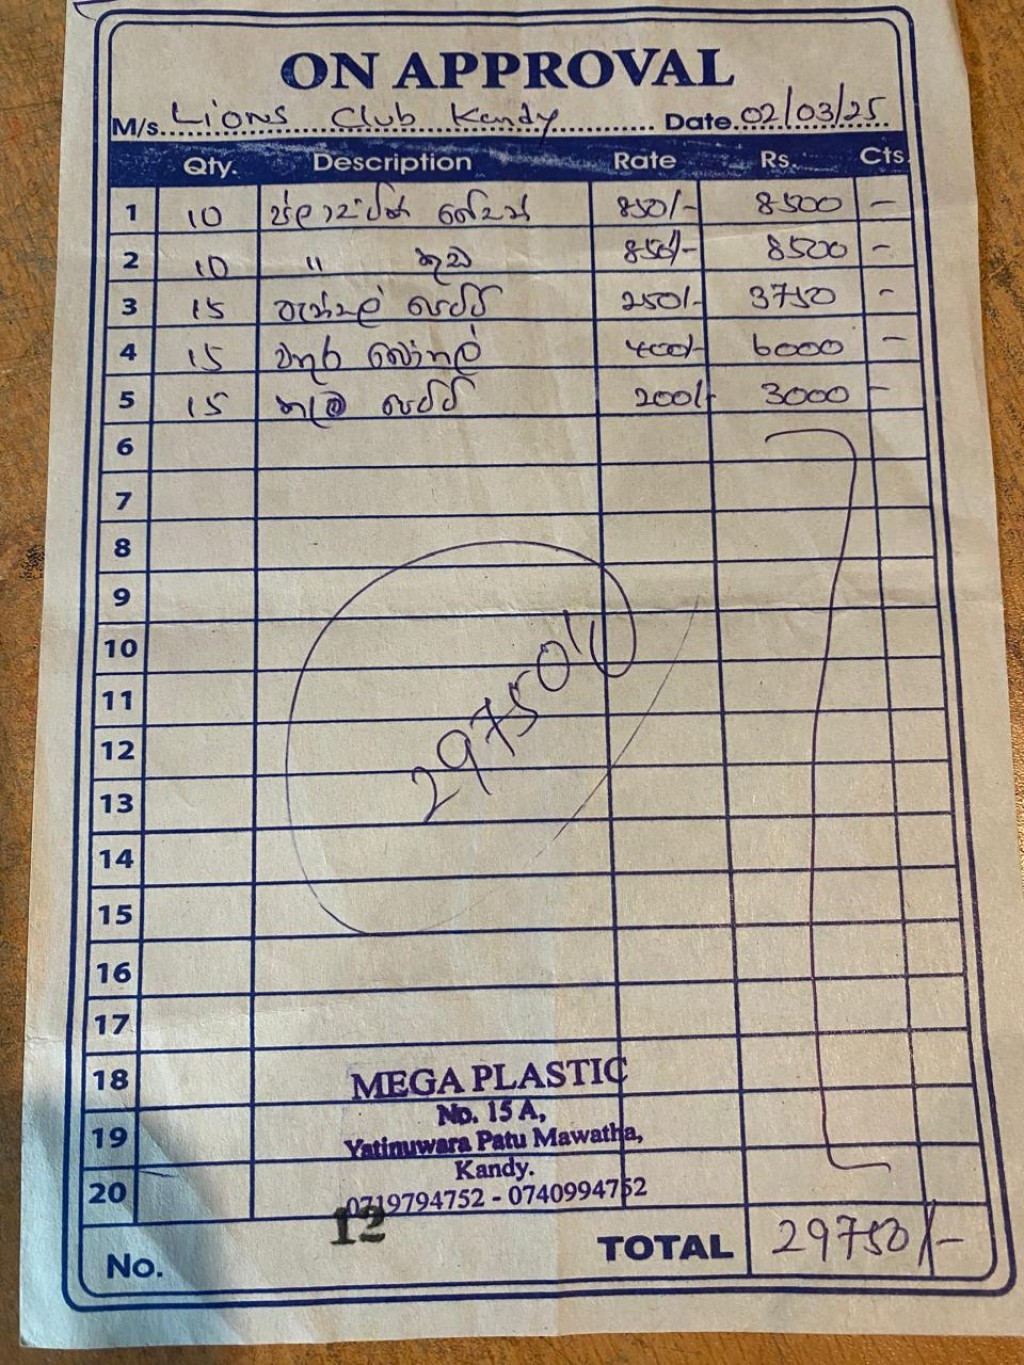 ON APPROVAL
M/s. Lions Club Kandy Date. 02/03/25
Qty. Description Rate Rs. Cts.
1 10 850/- 8500 -
2 10 " 850/- 8500 -
3 15 පැන්සල් පෙට්ටි 250/- 3750 -
4 15 වතුර බෝතල් 400/- 6000 -
5 15 කෑම පෙට්ටි 200/- 3000 -
6
7
8
9
10
11
12
13
14
15
16
17
18
19
20
29750/-
MEGA PLASTIC
No. 15 A,
Yatinuwara Patu Mawatha,
Kandy.
0719794752 - 0740994752
No. 12 TOTAL 29750/-